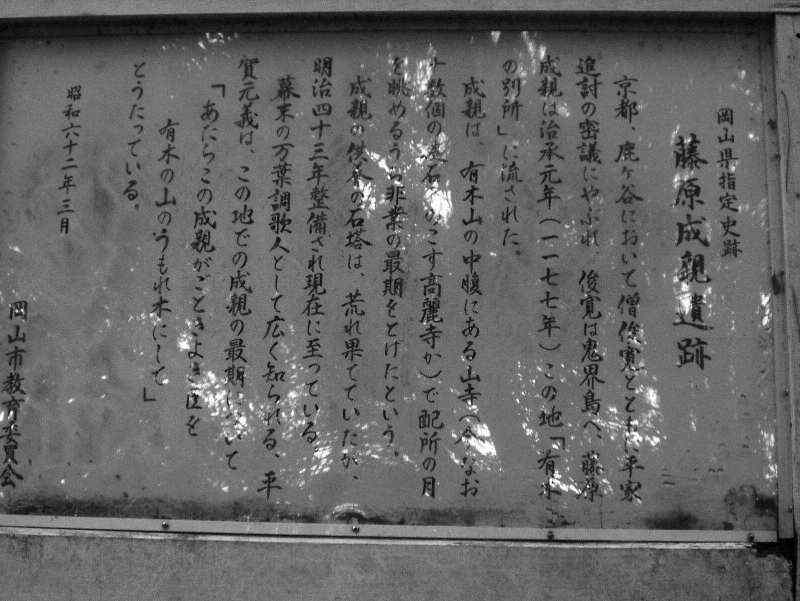 岡山県指定史跡
藤原成親遺跡
京都、鹿ヶ谷において僧俊寛とともに平家
追討の密議にやぶれ、俊寛は鬼界島へ、藤原
成親は治承元年(一一七七年)この地「有木
の別所」に流された。
成親は、有木山の中腹にある山寺(今なお
十数個の礎石をのこす高麗寺か)で配所の月
を眺めるうち非業の最期をとげたという。
成親の供養の石塔は、荒れ果てていたが、
明治四十三年整備され現在に至っている。
幕末の万葉調歌人として広く知られる、平
賀元義は、この地での成親の最期について
「あたらこの成親がごときよき臣を
有木の山のうもれ木にして」
とうたっている。
昭和六十二年三月
岡山市教育委員会